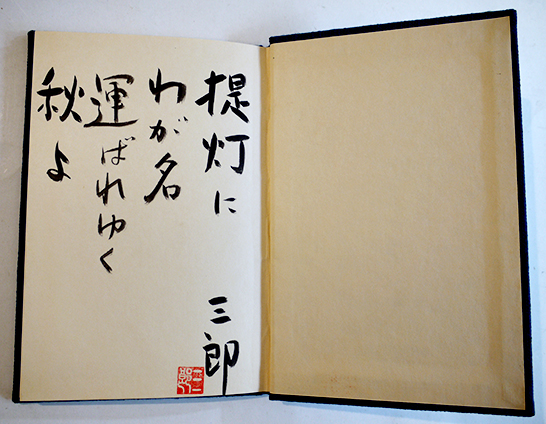 提灯に
わが名
運ばれゆく
秋よ
三郎